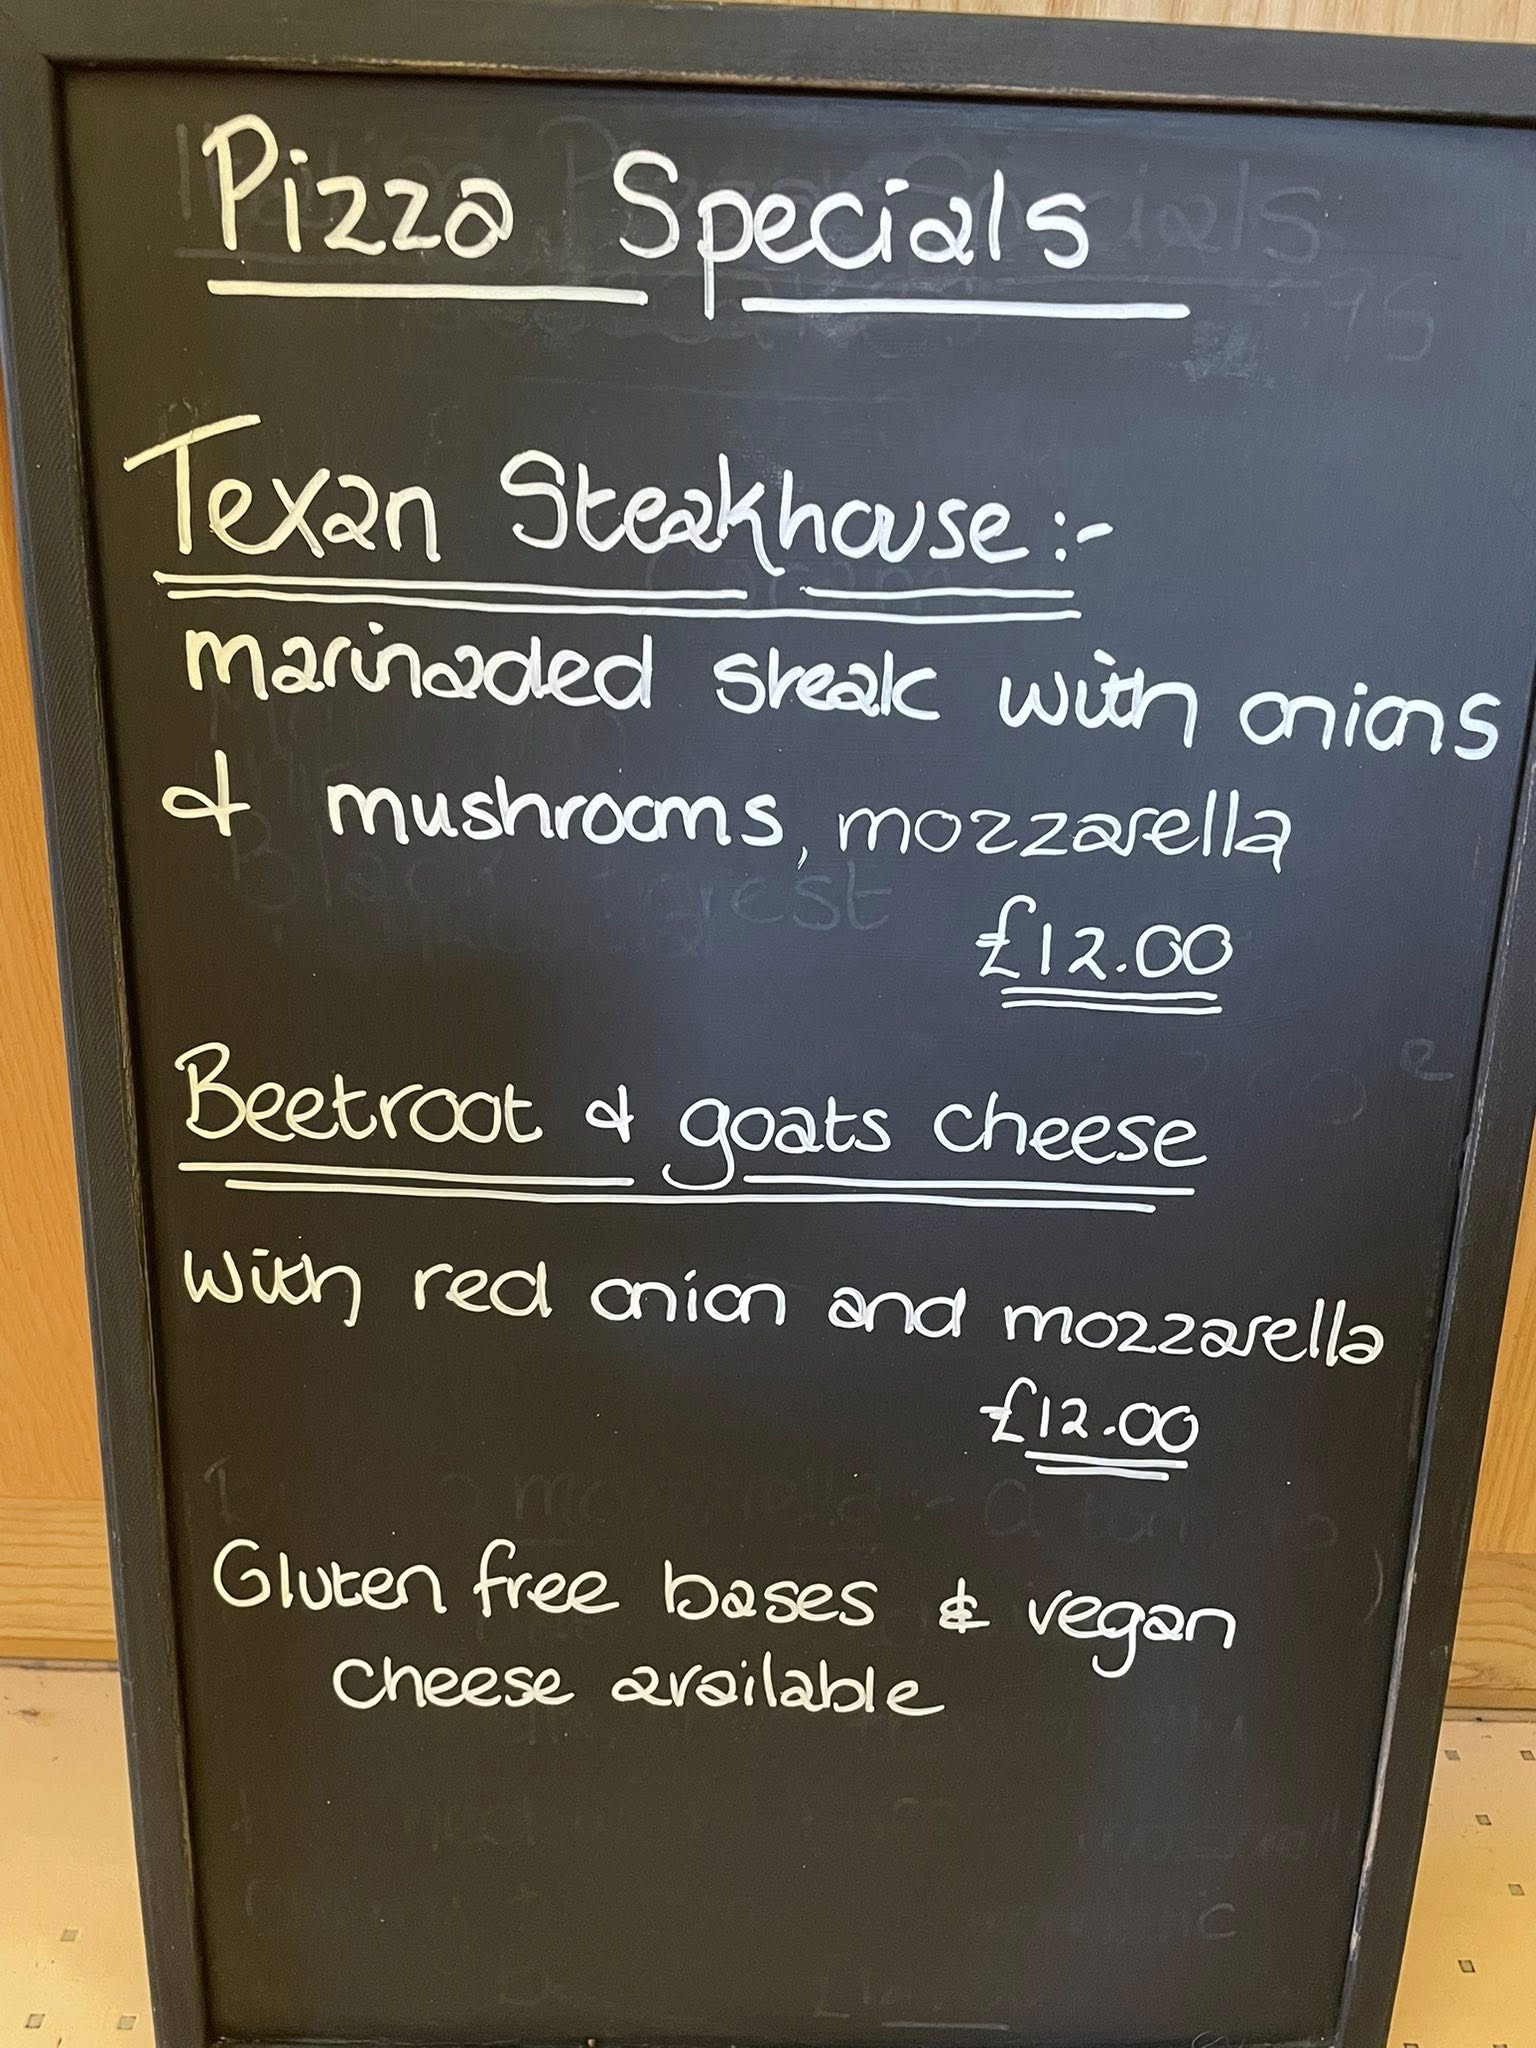 Pizza Specials
Texan Steakhouse:-
marinaded steak with onions
& mushrooms, mozzarella
£12.00
Beetroot & goats cheese
with red onion and mozzarella
£12.00
Gluten free bases & vegan
cheese available